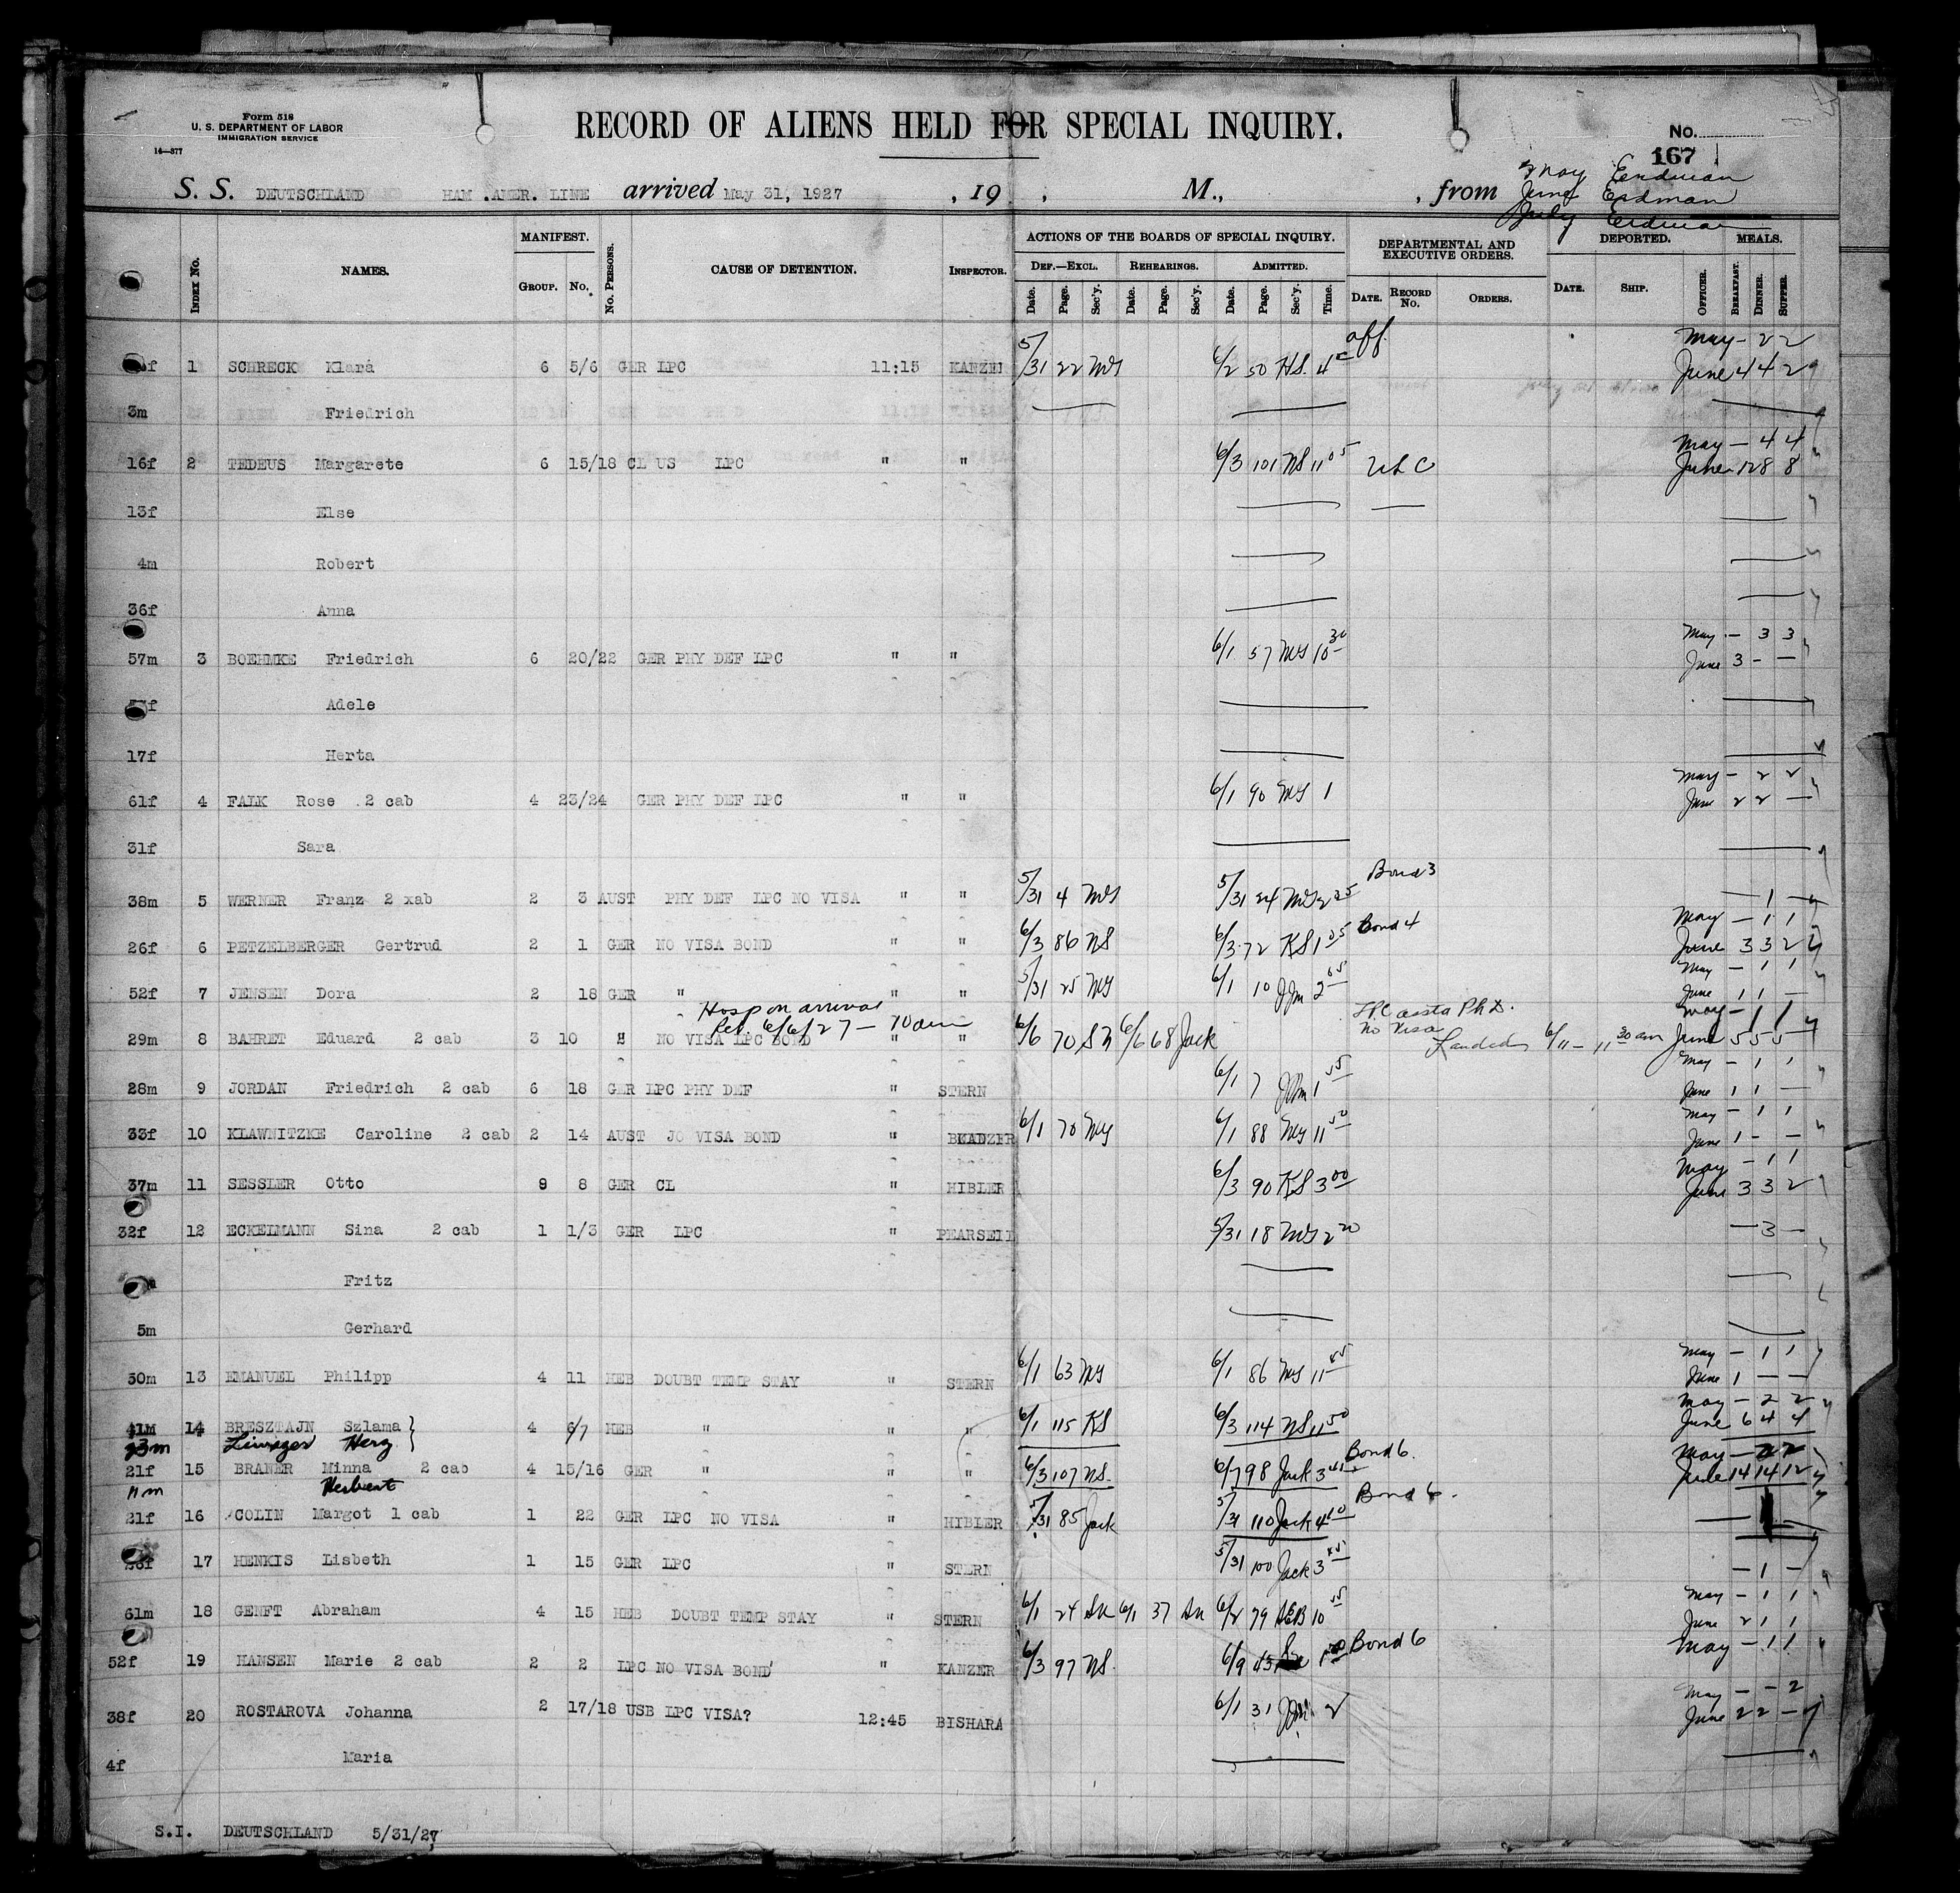 Form 518
U. S. DEPARTMENT OF LABOR
IMMIGRATION SERVICE
14—377
RECORD OF ALIENS HELD FOR SPECIAL INQUIRY.
No.
167
S. S. DEUTSCHLAND HAM .AMER. LINE arrived May 31, 1927 , 19 , M., , from
May Erdman
June Erdman
July Erdman
INDEX No. NAMES. MANIFEST. GROUP. No. No. PERSONS. CAUSE OF DETENTION. INSPECTOR. ACTIONS OF THE BOARDS OF SPECIAL INQUIRY. DEF.—EXCL. Date. Page. Sec'y. REHEARINGS. Date. Page. Sec'y. ADMITTED. Date. Page. Sec'y. Time. DEPARTMENTAL AND EXECUTIVE ORDERS. DATE. RECORD No. ORDERS. DEPORTED. DATE. SHIP. OFFICER. MEALS. BREAKFAST. DINNER. SUPPER.
aff. May - 2 2
f 1 SCHRECK Klara 6 5/6 GER LPC 11:15 KANZEI 5/31 22 MS 6/2 50 HS. 4 June 4 4 2
3m Friedrich
May - 4 4
16f 2 TEDEUS Margarete 6 15/18 CL US LPC " " 6/3 101 NS 11 05 June 12 8 8
13f Else
4m Robert
36f Anna
May - 3 3
57m 3 BOEHMKE Friedrich 6 20/22 GER PHY DEF LPC " " 6/1 57 MS 10 30 June 3 - -
f Adele
17f Herta
May - 2 2
61f 4 FALK Rose .2 cab 4 23/24 GER PHY DEF LPC " " 6/1 90 MS 1 June 2 2 -
31f Sara
Bond 3
38m 5 WERNER Franz 2 xab 2 3 AUST PHY DEF LPC NO VISA " " 5/31 4 MS 5/31 24 MS 2 35 - 1 -
Bond 4 May - 1 1
26f 6 PETZELBERGER Gertrud 2 1 GER NO VISA BOND " " 6/3 86 NS 6/3 72 KS 1 35 June 3 3 2
May - 1 1
52f 7 JENSEN Dora 2 18 GER " " " 5/31 25 MS 6/1 10 JJm 2 June 1 1 -
Hosp on arrival
6/6/27 - 10 am No Visa May - 1 1
29m 8 BAHRET Eduard 2 cab 3 10 " NO VISA LPC BOND " " 6/6 70 6/6 68 Jack Landed 6/11 - 11 30 am June 5 5 5
May - 1 1
28m 9 JORDAN Friedrich 2 cab 6 18 GER LPC PHY DEF " STERN 6/1 7 JJm 1 55 June 1 1 -
May - 1 1
33f 10 KLAWNITZKE Caroline 2 cab 2 14 AUST JO VISA BOND " 6/1 70 MS 6/1 88 MS 11 50 June 1 - -
May - 1 1
37m 11 SESSLER Otto 9 8 GER CL " HIBLER 6/3 90 KS 3 00 June 3 3 2
32f 12 ECKELMANN Sina 2 cab 1 1/3 GER LPC " PEARSELL 5/31 18 MS 2 20 - 3 -
Fritz
5m Gerhard
May - 1 1
50m 13 EMANUEL Philipp 4 11 HEB DOUBT TEMP STAY " STERN 6/1 63 MS 6/1 86 MS 11 June 1 - -
May - 2 2
41M 14 BRESZTAJN Szlama 4 6/7 HEB " " " 6/1 115 KS 6/3 114 NS 11 50 June 6 4 4
Herz Bond 6. May - 2 2
21f 15 BRANER Minna 2 cab 4 15/16 GER " " " 6/3 107 NS. 6/7 98 Jack 3 June 14 14 12
11m Herbert Bond 6.
21f 16 COLIN Margot 1 cab 1 22 GER LPC NO VISA " HIBLER 5/31 85 Jack 5/31 110 Jack 4 10
17 HENKIS Lisbeth 1 15 GER LPC " STERN 5/31 100 Jack 3 - 1 -
May - 1 1
61m 18 GENFT Abraham 4 15 HEB DOUBT TEMP STAY " STERN 6/1 24 6/1 37 6/2 79 10 15 June 2 1 1
Bond 6 May - 1 1
52f 19 HANSEN Marie 2 cab 2 2 LPC NO VISA BOND " KANZER 6/3 97 NS. 6/9
May - - 2
38f 20 ROSTAROVA Johanna 2 17/18 USB LPC VISA? 12:45 BISHARA 6/1 31 JJm 2 June 2 2 -
4f Maria
S.I. DEUTSCHLAND 5/31/27